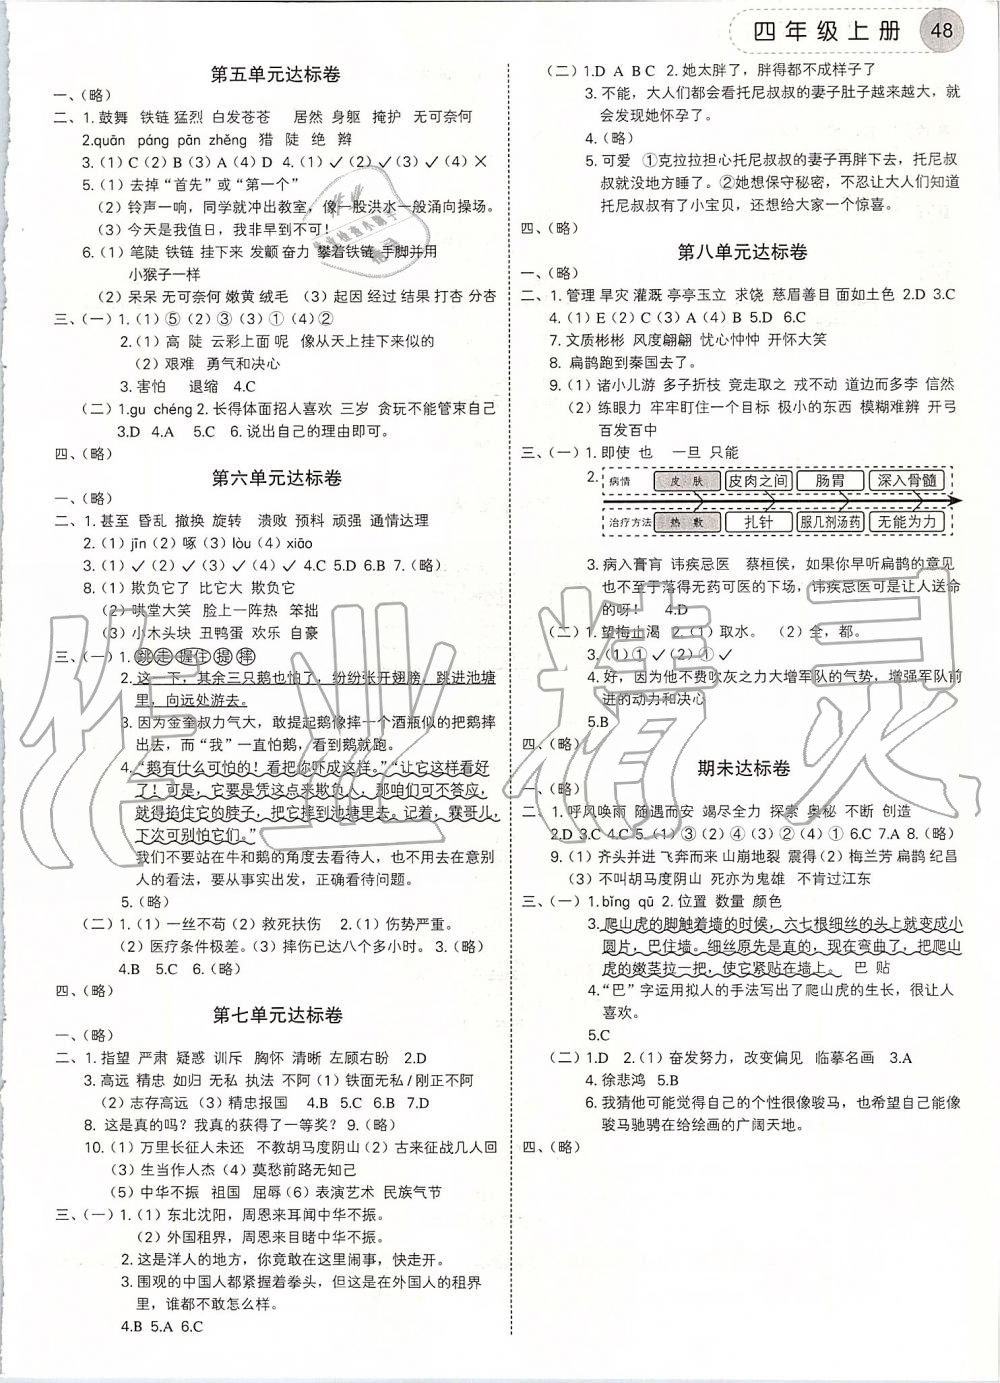 四年级上册 48
第五单元达标卷
一、(略)
二、1.鼓舞 铁链 猛烈 白发苍苍 居然 身躯 掩护 无可奈何
2.quān páng pān zhěng 猎 陡 绝 辫
3.(1)C(2)B(3)A(4)D 4.(1)✓(2)✓(3)✓(4)×
5.(1)去掉“首先”或“第一个”
(2)铃声一响，同学就冲出教室，像一股洪水一般涌向操场。
(3)今天是我值日，我非早到不可！
6.(1)笔陡 铁链 挂下来 发颤 奋力 攀着铁链 手脚并用
小猴子一样
(2)呆呆 无可奈何 嫩黄 绒毛 (3)起因 经过 结果 打杏 分杏
三、(一)1.(1)⑤(2)③(3)①(4)②
2.(1)高 陡 云彩上面 呢 像从天上挂下来似的
(2)艰难 勇气和决心
3.害怕 退缩 4.C
(二)1.gu chéng 2.长得体面招人喜欢 三岁 贪玩不能管束自己
3.D 4.A 5.C 6.说出自己的理由即可。
四、(略)
第六单元达标卷
一、(略)
二、1.甚至 昏乱 撤换 旋转 溃败 预料 顽强 通情达理
2.(1)jīn(2)啄(3)lòu(4)xiāo
3.(1)✓(2)✓(3)✓(4)✓ 4.C 5.D 6.B 7.(略)
8.(1)欺负它了 比它大 欺负它
(2)哄堂大笑 脸上一阵热 笨拙
(3)小木头块 丑鸭蛋 欢乐 自豪
三、(一)1.跳走 握住 提 摔
2.这一下，其余三只鹅也怕了，纷纷张开翅膀，跳进池塘
里，向远处游去。
3.因为金奎叔力气大，敢提起鹅像摔一个酒瓶似的把鹅摔
出去，而“我”一直怕鹅，看到鹅就跑。
4.“鹅有什么可怕的！看把你吓成这样。”“让它这样看好
了！可是，它要是凭这点来欺负人，那咱们可不答应，
就得掐住它的脖子，把它摔到池塘里去。记着，霖哥儿，
下次可别怕它们。”
我们不要站在牛和鹅的角度去看待人，也不用去在意别
人的看法，要从事实出发，正确看待问题。
5.(略)
(二)1.(1)一丝不苟(2)救死扶伤 2.(1)伤势严重。
(2)医疗条件极差。(3)摔伤已达八个多小时。3.(略)
4.B 5.C 6.(略)
四、(略)
第七单元达标卷
一、(略)
二、1.指望 严肃 疑惑 训斥 胸怀 清晰 左顾右盼 2.D
3.高远 精忠 如归 无私 执法 不阿(1)铁面无私/刚正不阿
(2)志存高远(3)精忠报国 4.B 5.B 6.C 7.D
8.这是真的吗？我真的获得了一等奖？9.(略)
10.(1)万里长征人未还 不教胡马度阴山(2)古来征战几人回
(3)生当作人杰(4)莫愁前路无知己
(5)中华不振 祖国 屈辱(6)表演艺术 民族气节
三、(一)1.(1)东北沈阳，周恩来耳闻中华不振。
(2)外国租界，周恩来目睹中华不振。
2.这是洋人的地方，你竟敢在这里闹事，快走开。
3.围观的中国人都紧握着拳头，但这是在外国人的租界
里，谁都不敢怎么样。
4.B 5.A 6.C
(二)1.D A B C 2.她太胖了，胖得都不成样子了
3.不能，大人们都会看托尼叔叔的妻子肚子越来越大，就
会发现她怀孕了。
4.(略)
5.可爱 ①克拉拉担心托尼叔叔的妻子再胖下去，托尼叔
叔就没地方睡了。②她想保守秘密，不忍让大人们知道
托尼叔叔有了小宝贝，还想给大家一个惊喜。
四、(略)
第八单元达标卷
一、(略)
二、1.管理 旱灾 灌溉 亭亭玉立 求饶 慈眉善目 面如土色 2.D 3.C
4.(1)E(2)C(3)A(4)B 5.D 6.C
7.文质彬彬 风度翩翩 忧心忡忡 开怀大笑
8.扁鹊跑到秦国去了。
9.(1)诸小儿游 多子折枝 竞走取之 戎不动 道边而多李 信然
(2)练眼力 牢牢盯住一个目标 极小的东西 模糊难辨 开弓
百发百中
三、(一)1.即使 也 一旦 只能
2.病情 皮肤 皮肉之间 肠胃 深入骨髓
治疗方法 热敷 扎针 服几剂汤药 无能为力
3.病入膏肓 讳疾忌医 蔡桓侯，如果你早听扁鹊的意见
也不至于落得无药可医的下场，讳疾忌医可是让人送命
的呀！ 4.D
(二)1.望梅止渴 2.(1)取水。 (2)全，都。
3.(1)①✓(2)①✓
4.好，因为他不费吹灰之力大增军队的气势，增强军队前
进的动力和决心
5.B
四、(略)
期末达标卷
一、(略)
二、1.呼风唤雨 随遇而安 竭尽全力 探索 奥秘 不断 创造
2.D 3.C 4.C 5.(1)③(2)④(3)②(4)① 6.C 7.A 8.(略)
9.(1)齐头并进 飞奔而来 山崩地裂 震得(2)梅兰芳 扁鹊 纪昌
(3)不叫胡马度阴山 死亦为鬼雄 不肯过江东
三、(一)1.bǐng qū 2.位置 数量 颜色
3.爬山虎的脚触着墙的时候，六七根细丝的头上就变成小
圆片，巴住墙。细丝原先是直的，现在弯曲了，把爬山
虎的嫩茎拉一把，使它紧贴在墙上。 巴 贴
4.“巴”字运用拟人的手法写出了爬山虎的生长，很让人
喜欢。
5.C
(二)1.D 2.(1)奋发努力，改变偏见 临摹名画 3.A
4.徐悲鸿 5.B
6.我猜他可能觉得自己的个性很像骏马，也希望自己能像
骏马驰骋在给绘画的广阔天地。
四、(略)
作业精灵